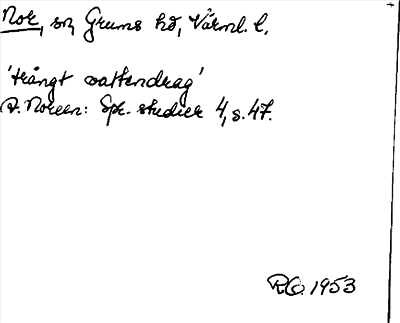 Nor, sn, Grums hd, Värml. l.
'trångt vattendrag'
A. Noreen: Spr. studier 4, s. 47.
R.O. 1953